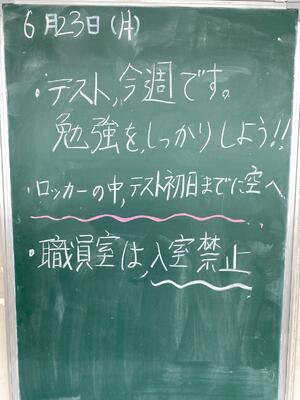 6月23日(月)
・テスト,今週です。
勉強を,しっかりしよう!!
・ロッカーの中,テスト初日までに空へ
・職員室は,入室禁止